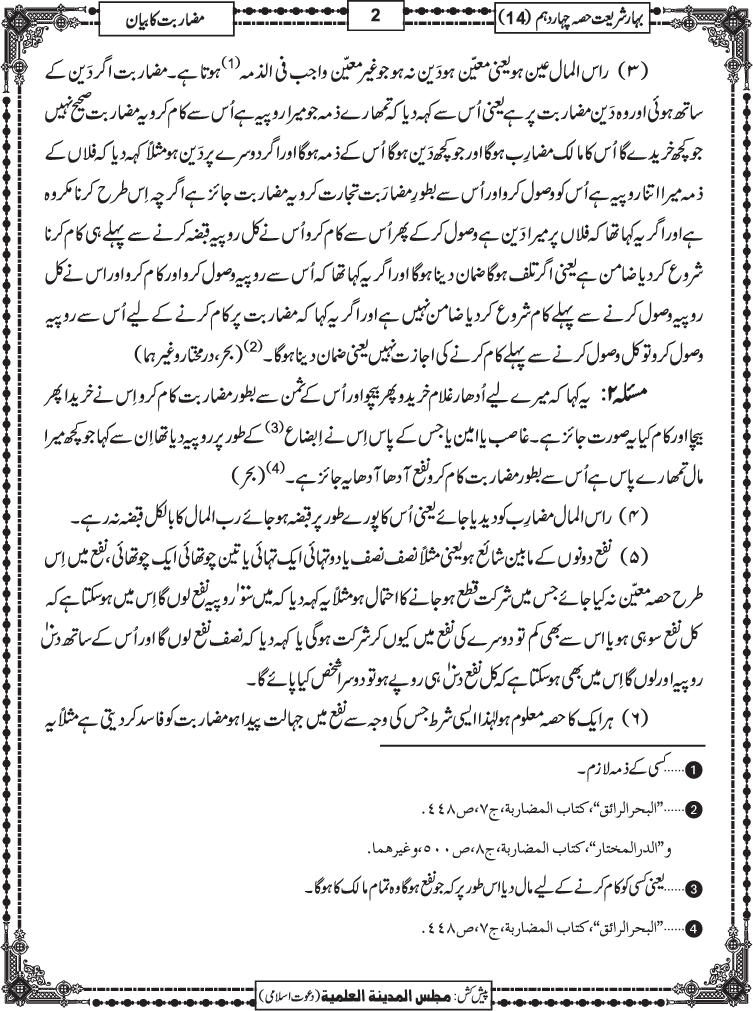 بہارِ شریعت حصہ چہاردہم (14)
2
مضاربت کا بیان
(۳) راس المال عین ہو یعنی معیّن ہو دَین نہ ہو جو غیر معیّن واجب فی الذمہ(1) ہوتا ہے۔ مضاربت اگر دَین کے
ساتھ ہوئی اور وہ دَین مضارِبت پر ہے یعنی اُس سے کہہ دیا کہ تمھارے ذمہ جو میرا روپیہ ہے اُس سے کام کرو یہ مضاربت صحیح نہیں
جو کچھ خریدے گا اُس کا مالک مضارِب ہوگا اور جو کچھ دَین ہوگا اُس کے ذمہ ہوگا اور اگر دوسرے پر دَین ہو مثلاً کہہ دیا کہ فلاں کے
ذمہ میرا اتنا روپیہ ہے اُس کو وصول کرو اور اُس سے بطورِ مضارَبت تجارت کرو یہ مضاربت جائز ہے اگرچہ اِس طرح کرنا مکروہ
ہے اور اگر یہ کہا تھا کہ فلاں پر میرا دَین ہے وصول کر کے پھر اُس سے کام کرو اُس نے کل روپیہ قبضہ کرنے سے پہلے ہی کام کرنا
شروع کر دیا ضامن ہے یعنی اگر تلف ہوگا ضمان دینا ہوگا اور اگر یہ کہا تھا کہ اُس سے روپیہ وصول کرو اور کام کرو اور اس نے کل
روپیہ وصول کرنے سے پہلے کام شروع کر دیا ضامن نہیں ہے اور اگر یہ کہا کہ مضاربت پر کام کرنے کے لیے اُس سے روپیہ
وصول کرو تو کل وصول کرنے سے پہلے کام کرنے کی اجازت نہیں یعنی ضمان دینا ہوگا۔(2) (بحر، درمختار وغیرہما)
مسئلہ ۲: یہ کہا کہ میرے لیے اُدھار غلام خریدو پھر بیچو اور اُس کے ثمن سے بطور مضاربت کام کرو اِس نے خریدا پھر
بیچا اور کام کیا یہ صورت جائز ہے۔ غاصب یا امین یا جس کے پاس اِس نے اِبضاع(3) کے طور پر روپیہ دیا تھا اِن سے کہا جو کچھ میرا
مال تمھارے پاس ہے اُس سے بطور مضاربت کام کرو نفع آدھا آدھا یہ جائز ہے۔(4) (بحر)
(۴) راس المال مضارِب کو دیدیا جائے یعنی اُس کا پورے طور پر قبضہ ہو جائے رب المال کا بالکل قبضہ نہ رہے۔
(۵) نفع دونوں کے مابین شائع ہو یعنی مثلاً نصف نصف یا دو تہائی ایک تہائی یا تین چوتھائی ایک چوتھائی، نفع میں اِس
طرح حصہ معیّن نہ کیا جائے جس میں شرکت قطع ہو جانے کا احتمال ہو مثلاً یہ کہہ دیا کہ میں سو۱۰۰ روپیہ نفع لوں گا اِس میں ہوسکتا ہے کہ
کل نفع سو ہی ہو یا اس سے بھی کم تو دوسرے کی نفع میں کیوں کر شرکت ہوگی یا کہہ دیا کہ نصف نفع لوں گا اور اُس کے ساتھ دس۱۰
روپیہ اور لوں گا اِس میں بھی ہوسکتا ہے کہ کل نفع دس۱۰ ہی روپے ہو تو دوسرا شخص کیا پائے گا۔
(۶) ہر ایک کا حصہ معلوم ہو لہٰذا ایسی شرط جس کی وجہ سے نفع میں جہالت پیدا ہو مضاربت کو فاسد کر دیتی ہے مثلاً یہ
1......کسی کے ذمہ لازم۔
2......"البحرالرائق"، کتاب المضاربة، ج۷، ص۴۴۸.
و"الدرالمختار"، کتاب المضاربة، ج۸، ص۵۰۰، وغیرهما.
3......یعنی کسی کو کام کرنے کے لیے مال دیا اس طور پر کہ جو نفع ہوگا وہ تمام مالک کا ہوگا۔
4......"البحرالرائق"، کتاب المضاربة، ج۷، ص۴۴۸.
پیش کش: مجلس المدینة العلمیة (دعوتِ اسلامی)